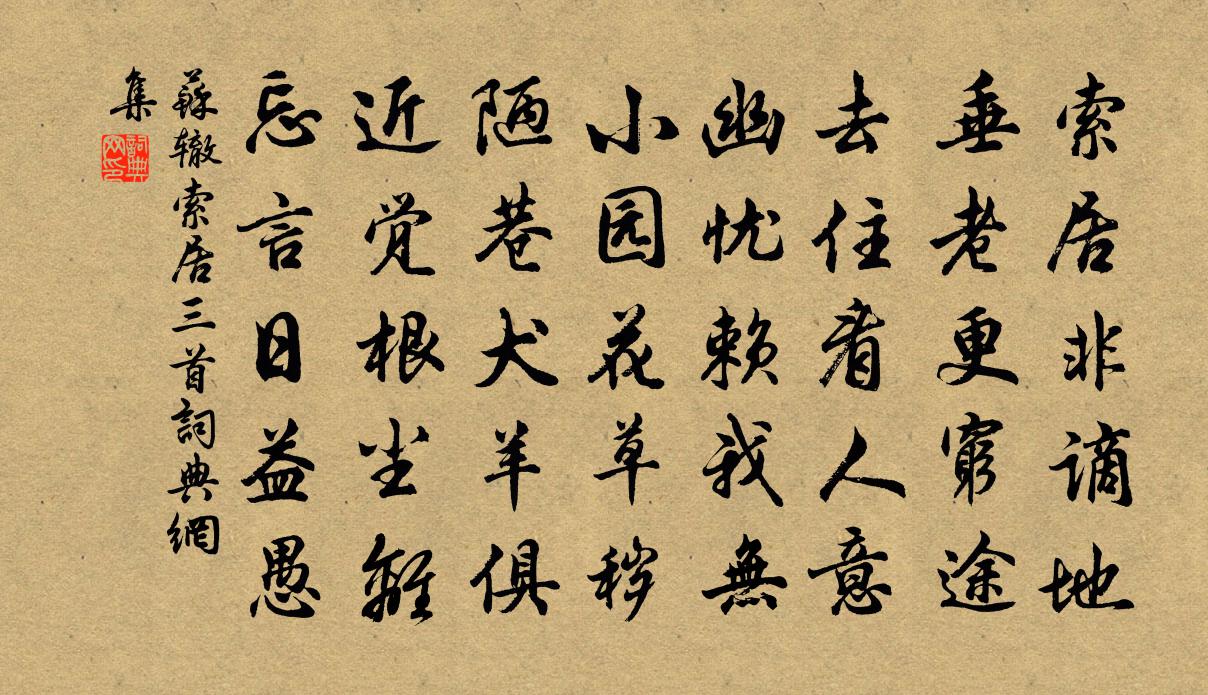 索居非谪地
垂老更窮途
去住看人意
幽忧赖我無
小园花草秽
陋巷犬羊俱
近觉根尘離
忘言日益愚
蘇辙索居三首詞典網
集
詞典
网印